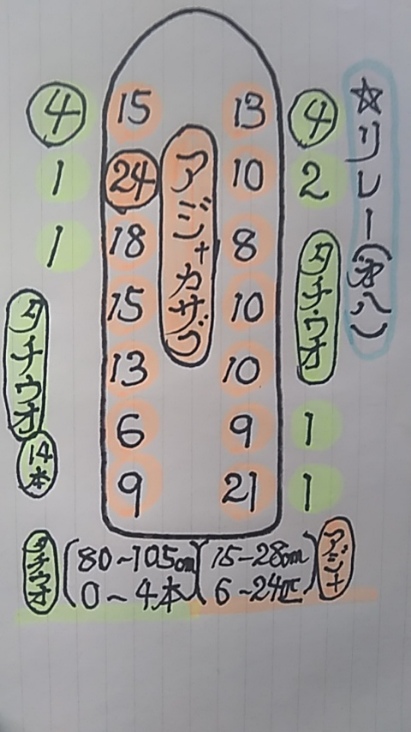 ☆リレー(弁八)
4 15 13 4
1 24 10 2
1 18 8
アジ+カサゴ
15 10
タチウオ
13 10
6 9 1
9 21 1
タチウオ
14本
タチウオ(80~105cm 0~4本)
(15-28cm 6~24匹)アジ+